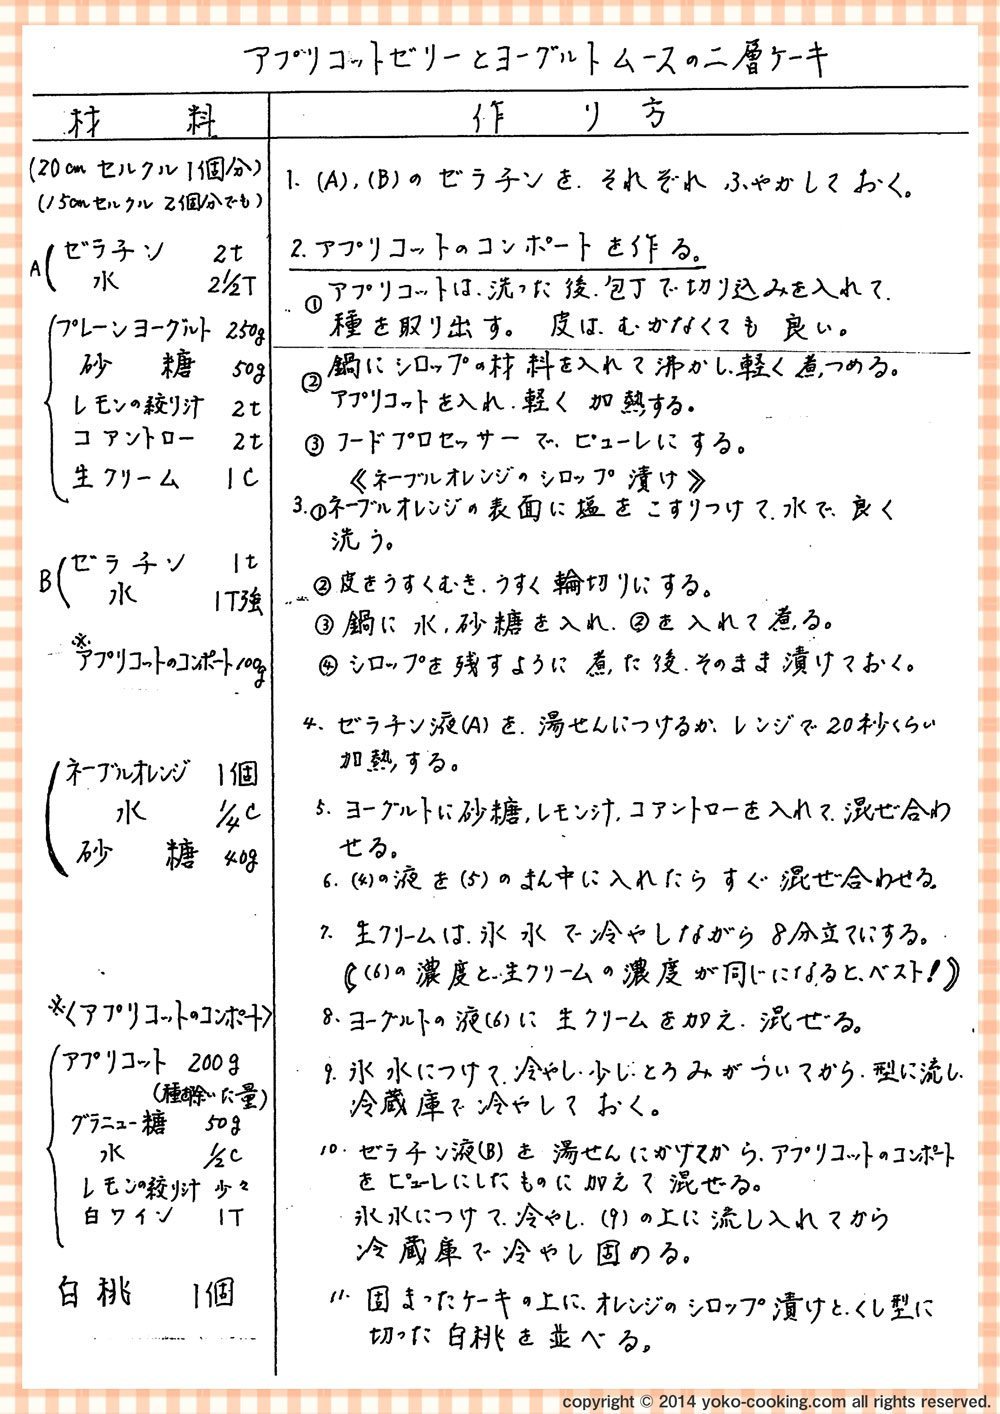 アプリコットゼリーとヨーグルトムースの二層ケーキ
材料
(20cmセルクル1個分)
(15cmセルクル2個分でも)
A
ゼラチン 2t
水 2½T
プレーンヨーグルト 250g
砂糖 50g
レモンの絞り汁 2t
コアントロー 2t
生クリーム 1C
B
ゼラチン 1t
水 1T強
※
アプリコットのコンポート100g
ネーブルオレンジ 1個
水 ¼C
砂糖 40g
※〈アプリコットのコンポート〉
アプリコット 200g
(種を除いた量)
グラニュー糖 50g
水 ½C
レモンの絞り汁 少々
白ワイン 1T
白桃 1個
作り方
1. (A),(B)のゼラチンを、それぞれふやかしておく。
2. アプリコットのコンポートを作る。
① アプリコットは、洗った後、包丁で切り込みを入れて、
種を取り出す。 皮は、むかなくても良い。
② 鍋にシロップの材料を入れて沸かし、軽く煮つめる。
アプリコットを入れ、軽く加熱する。
③ フードプロセッサーで、ピューレにする。
《ネーブルオレンジのシロップ漬け》
3. ①ネーブルオレンジの表面に塩をこすりつけて、水で、良く
洗う。
② 皮をうすくむき、うすく輪切りにする。
③ 鍋に水,砂糖を入れ、②を入れて煮る。
④ シロップを残すように煮た後、そのまま漬けておく。
4. ゼラチン液(A)を、湯せんにつけるか、レンジで20秒くらい
加熱する。
5. ヨーグルトに砂糖,レモン汁,コアントローを入れて、混ぜ合わ
せる。
6. (4)の液を(5)のまん中に入れたらすぐ混ぜ合わせる。
7. 生クリームは、氷水で冷やしながら8分立てにする。
《(6)の濃度と、生クリームの濃度が同じになると、ベスト!》
8. ヨーグルトの液(6)に生クリームを加え、混ぜる。
9. 氷水につけて、冷やし、少しとろみがついてから、型に流し、
冷蔵庫で冷やしておく。
10. ゼラチン液(B)を湯せんにかけてから、アプリコットのコンポート
をピューレにしたものに加えて混ぜる。
氷水につけて、冷やし、(9)の上に流し入れてから
冷蔵庫で冷やし固める。
11. 固まったケーキの上に、オレンジのシロップ漬けと、くし型に
切った白桃を並べる。
copyright © 2014 yoko-cooking.com all rights reserved.